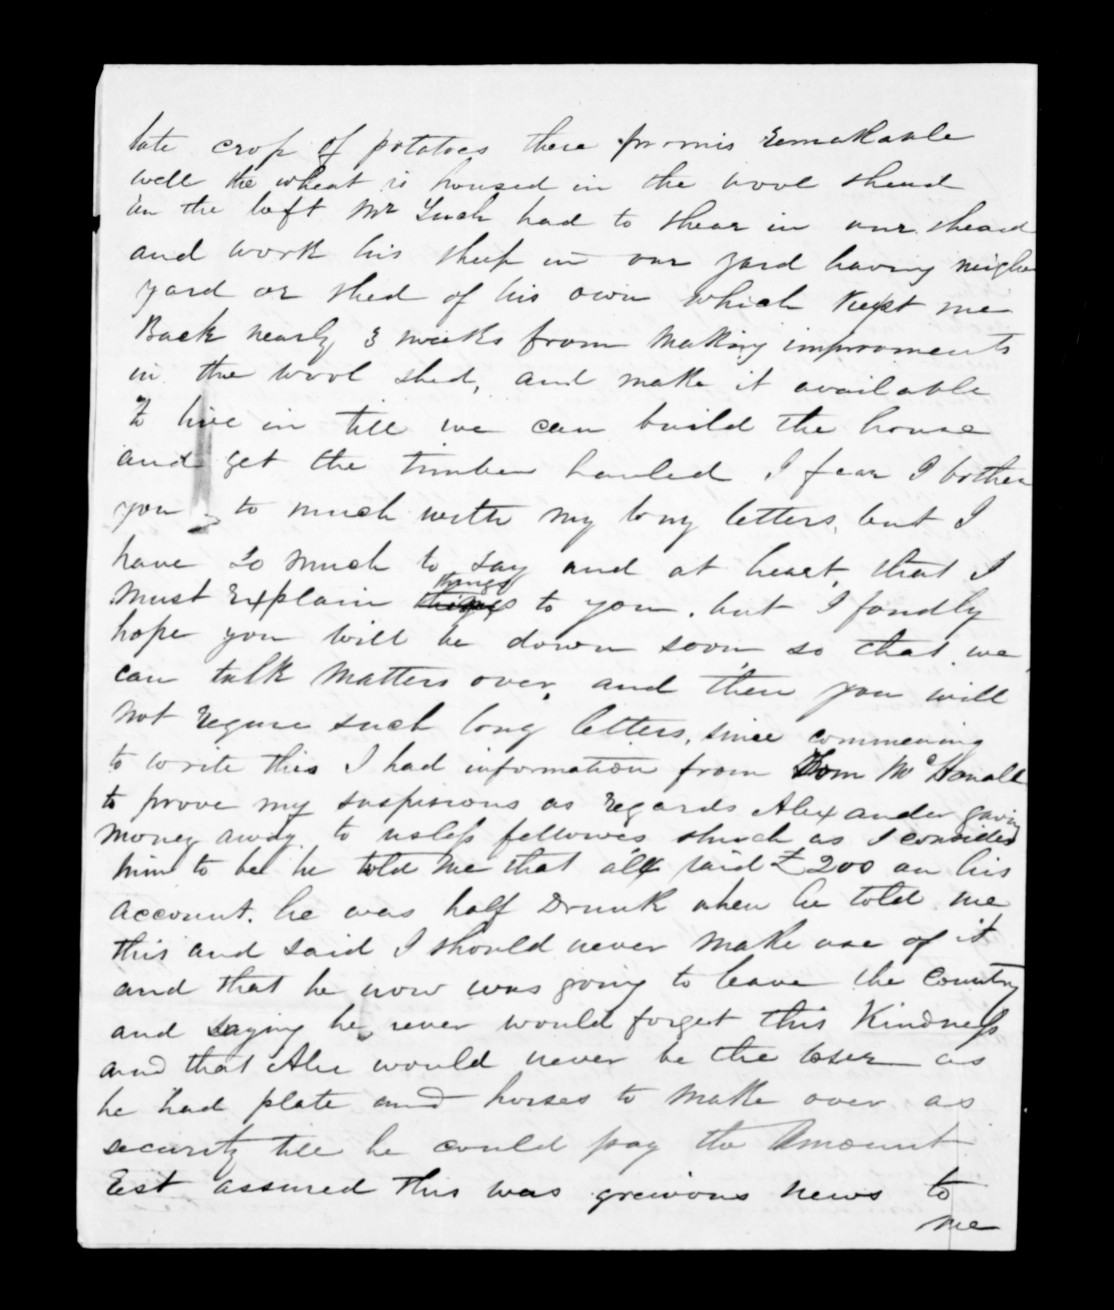 late crop of potatoes these promis remarkable
well the wheat is housed in the wool shead
in the loft Mr Tuck had to shear in our shead
and work his sheep in our yard having neigher
yard or shed of his own which kept me
Back nearly 3 weeks from making improvments
in the wool shed, and make it available
to live in till we can build the house
and get the timber hauled I fear I bother
you to much with my long letters, but I
have so much to say and at heart, that I
things
must explain things to you, but I fondly
hope you will be down soon, so that we
can talk matters over, and then you will
not regure such long letters, since commencing
to write this I had information from Dom McDonall
to prove my suspisions as regards Alexander giving
money away to usless fellowes shuch as I consider
him to be he told me that alx paid £200 on his
account. he was half Drunk when he told me
this and said I should never make use of it
and that he now was going to leave the country
and saying he never would forget this Kindness
and that Alic would never be the loser as
he had plate and horses to make over as
security till he could pay the Amount
Rest assured this was greivous news to
me